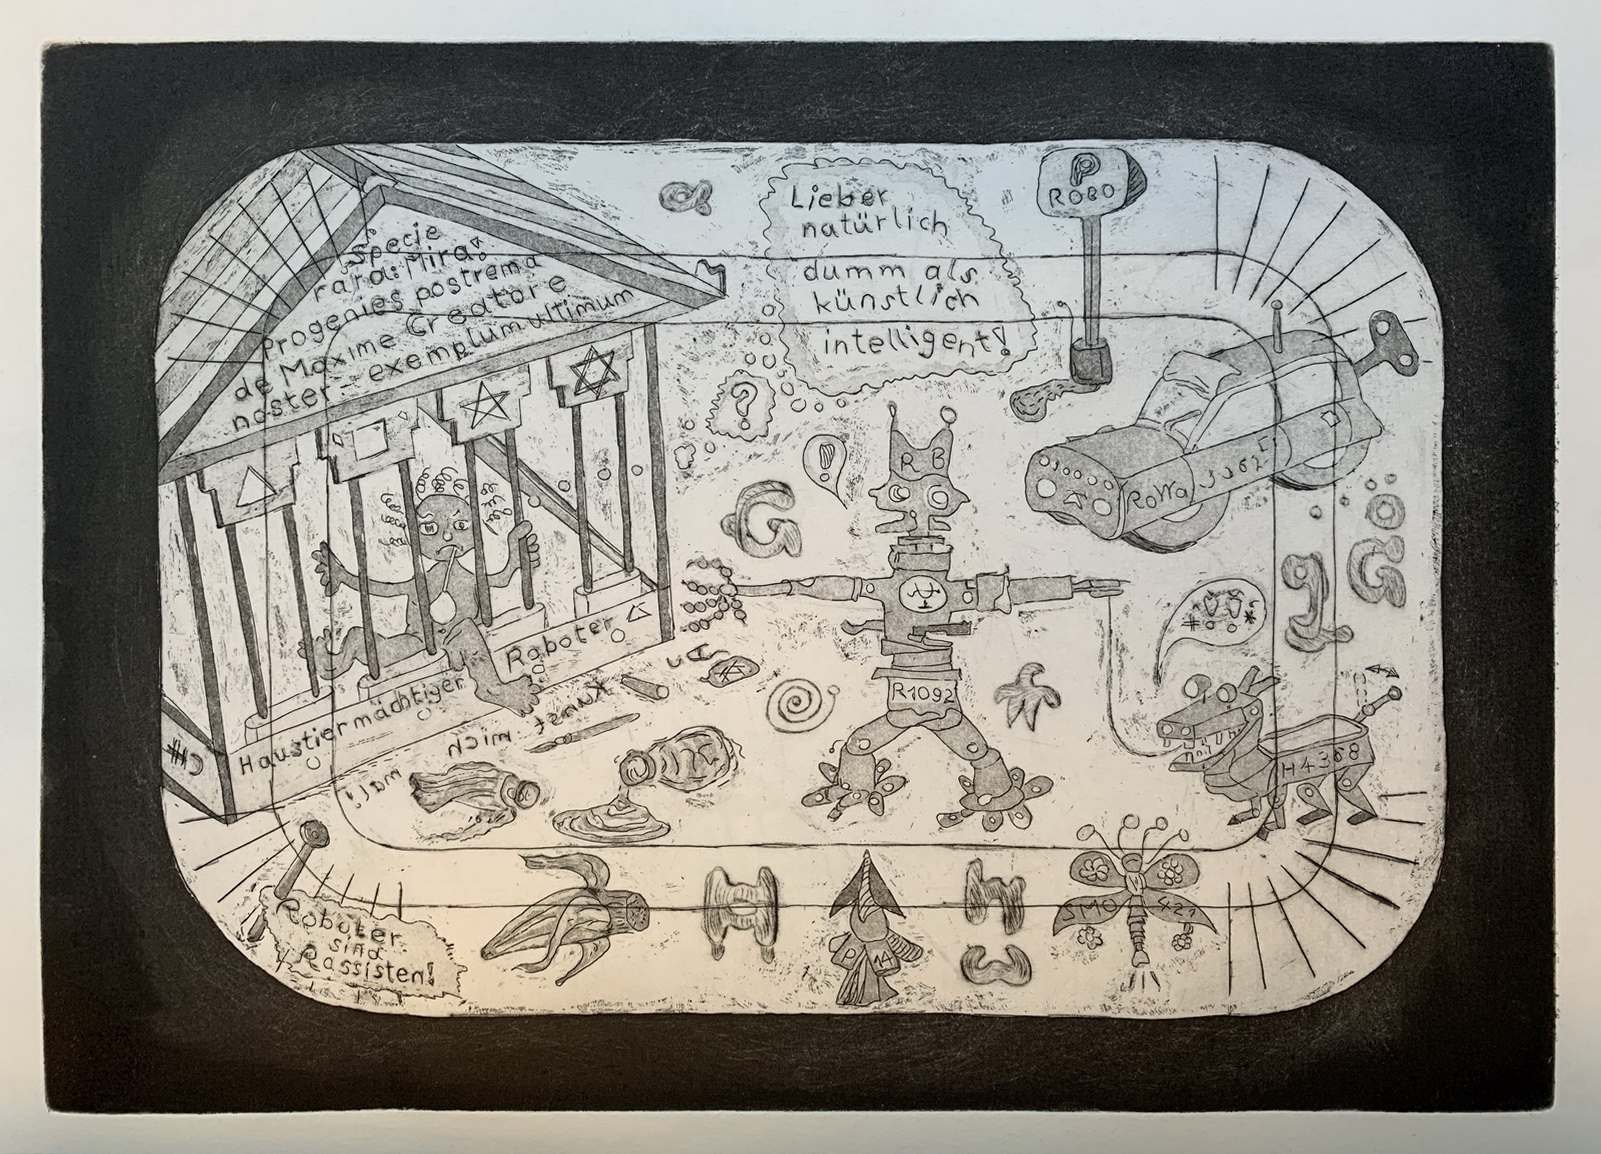 Specie
rara: Mira!
Progenies postrema
de Maxime Creatore
noster exemplum ultimum
Lieber
natürlich
dumm als
künstlich
intelligent!
?
P
ROBO
!
RB
RoWa
G
G
R1092
Haustiermächtiger
Roboter
Kunst
mich
mal!
H4368
Roboter
sind
Rassisten!
P 14
SMO 421